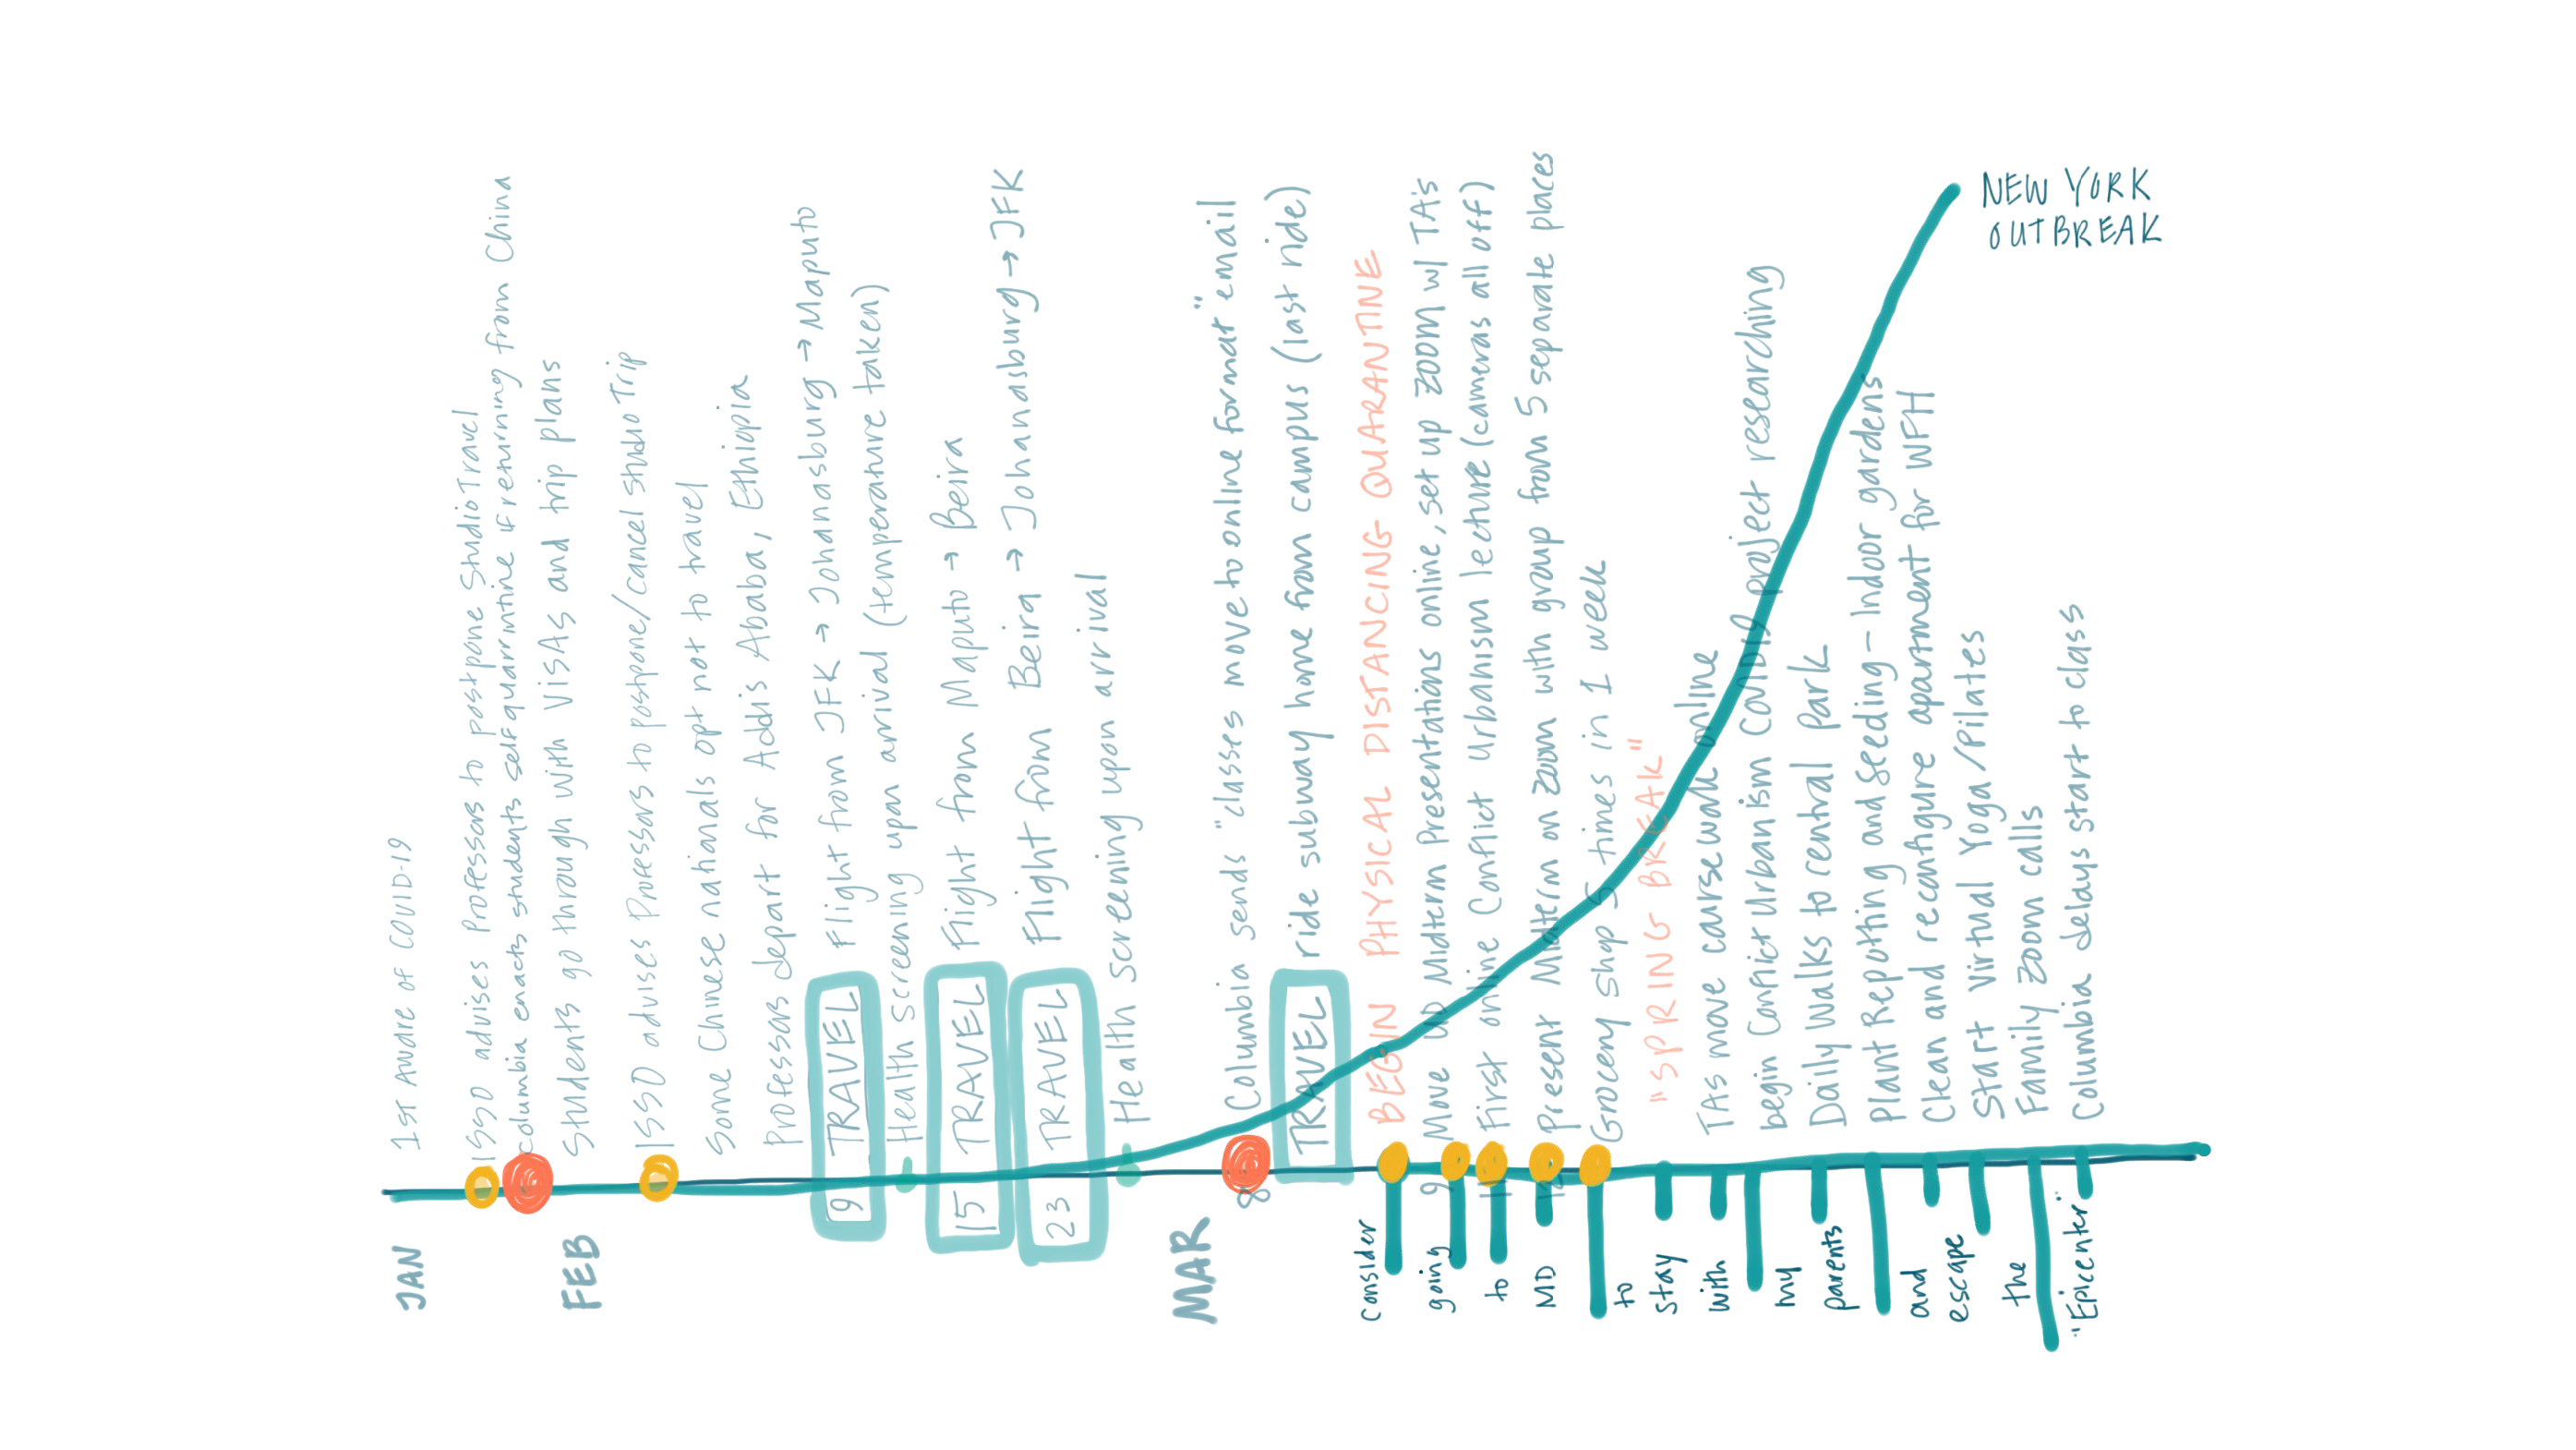 1st Aware of COVID-19
ISSO advises Professors to postpone Studio Travel
Columbia enacts students self quarantine if returning from China
Students go through with VISAs and trip plans
ISSO advises Professors to postpone/cancel studio Trip
Some Chinese nationals opt not to travel
Professors depart for Addis Ababa, Ethiopia
9 TRAVEL Flight from JFK → Johannasburg → Maputo
Health screening upon arrival (temperature taken)
15 TRAVEL Flight from Maputo → Beira
23 TRAVEL Flight from Beira → Johannasburg → JFK
Health screening upon arrival
8 Columbia sends "classes move to online format" email
TRAVEL ride subway home from campus (last ride)
BEGIN PHYSICAL DISTANCING QUARANTINE
9 Move up Midterm Presentations online, set up zoom w/ TA's
11 First online Conflict Urbanism lecture (cameras all off)
Present Midterm on zoom with group from 5 separate places
Grocery shop 5 times in 1 week
"SPRING BREAK"
TAs move coursework online
begin Conflict Urbanism Covid19 project researching
Daily walks to central park
Plant Repotting and Seeding - Indoor gardens
Clean and reconfigure apartment for WFH
Start Virtual Yoga/Pilates
Family zoom calls
Columbia delays start to class
NEW YORK
OUTBREAK
JAN
FEB
MAR
consider
going
to
MD
to
stay
with
my
parents
and
escape
the
"Epicenter"